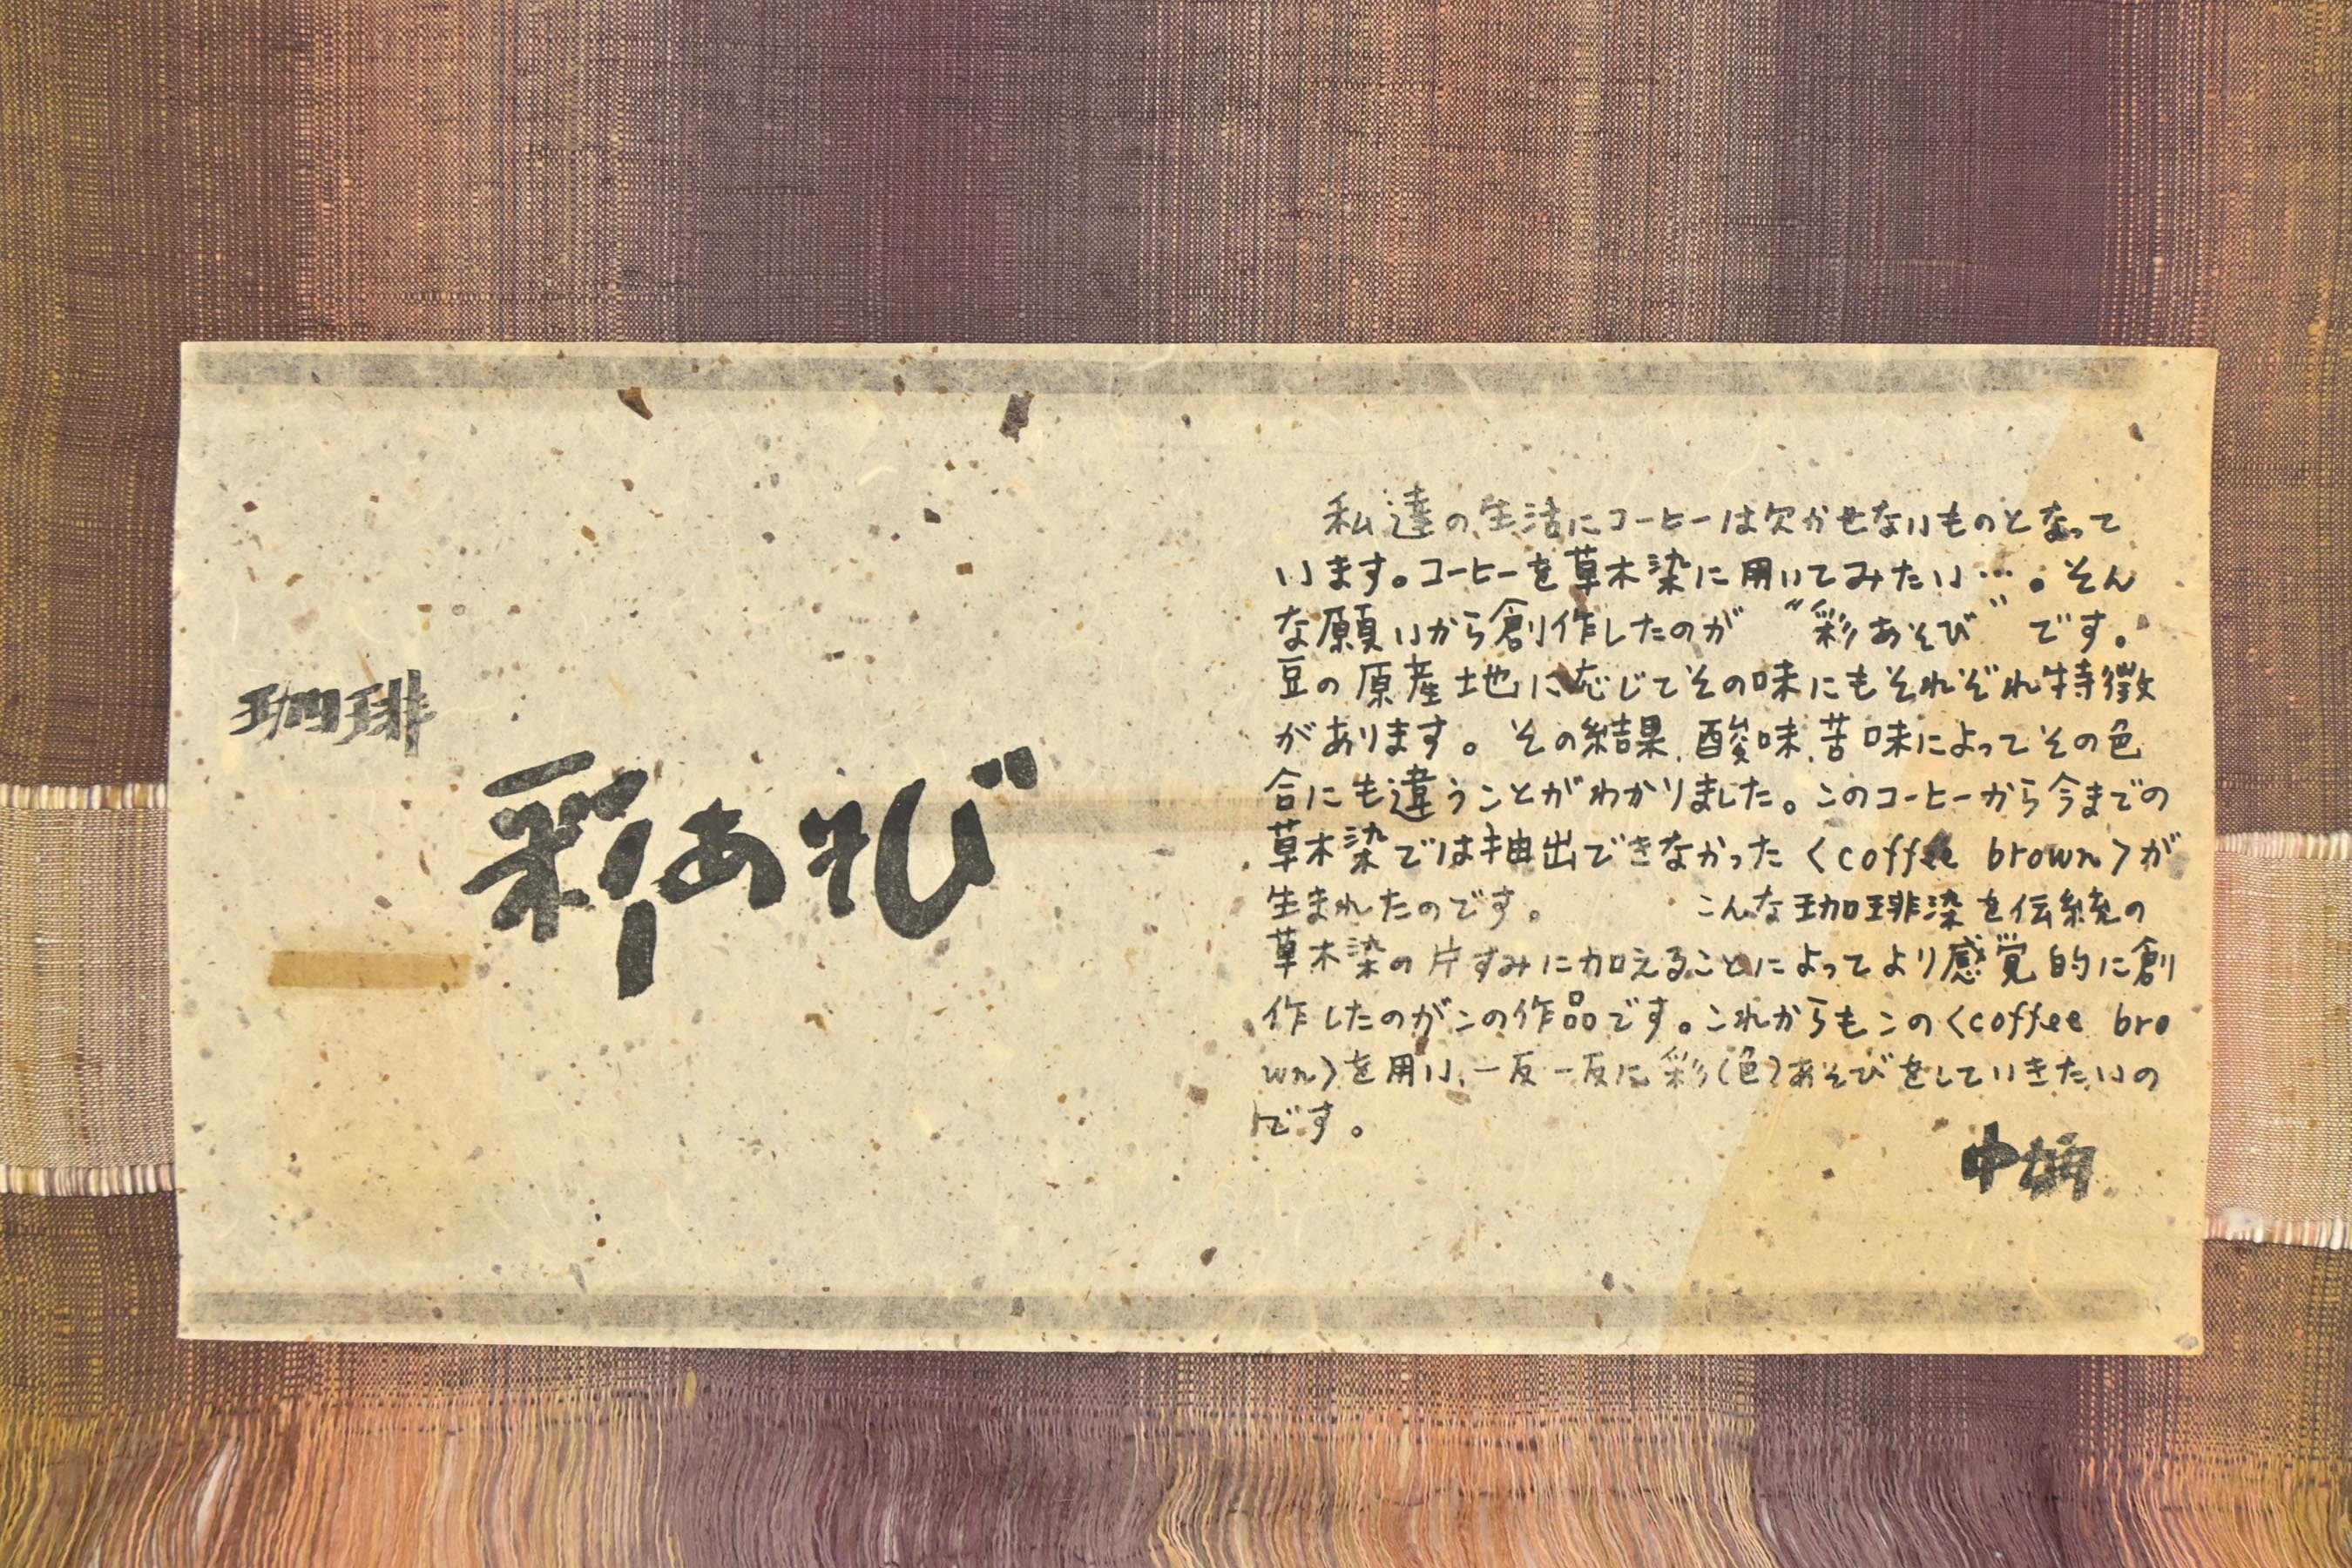 珈琲
彩あそび
私達の生活にコーヒーは欠かせないものとなって
います。コーヒーを草木染に用いてみたい…。そん
な願いから創作したのが “彩あそび” です。
豆の原産地に応じてその味にもそれぞれ特徴
があります。その結果、酸味、苦味によってその色
合にも違うことがわかりました。このコーヒーから今までの
草木染では抽出できなかった〈coffee brown〉が
生まれたのです。 こんな珈琲染を伝統の
草木染の片すみに加えることによってより感覚的に創
作したのがこの作品です。これからもこの〈coffee bro
wn〉を用い、一反一反に彩(色)あそびをしていきたいの
です。